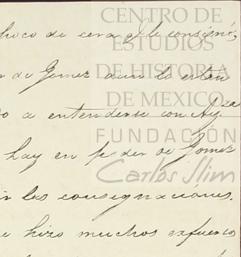 CENTRO DE
ESTUDIOS
DE HISTORIA
DE MEXICO
FUNDACIÓN
Carlos Slim
choco de cera q̃ le consignó,
de Gomez aun lo
a entenderse con
hay en poder de Gomez
las consignaciones.
hizo muchos esfuerzo